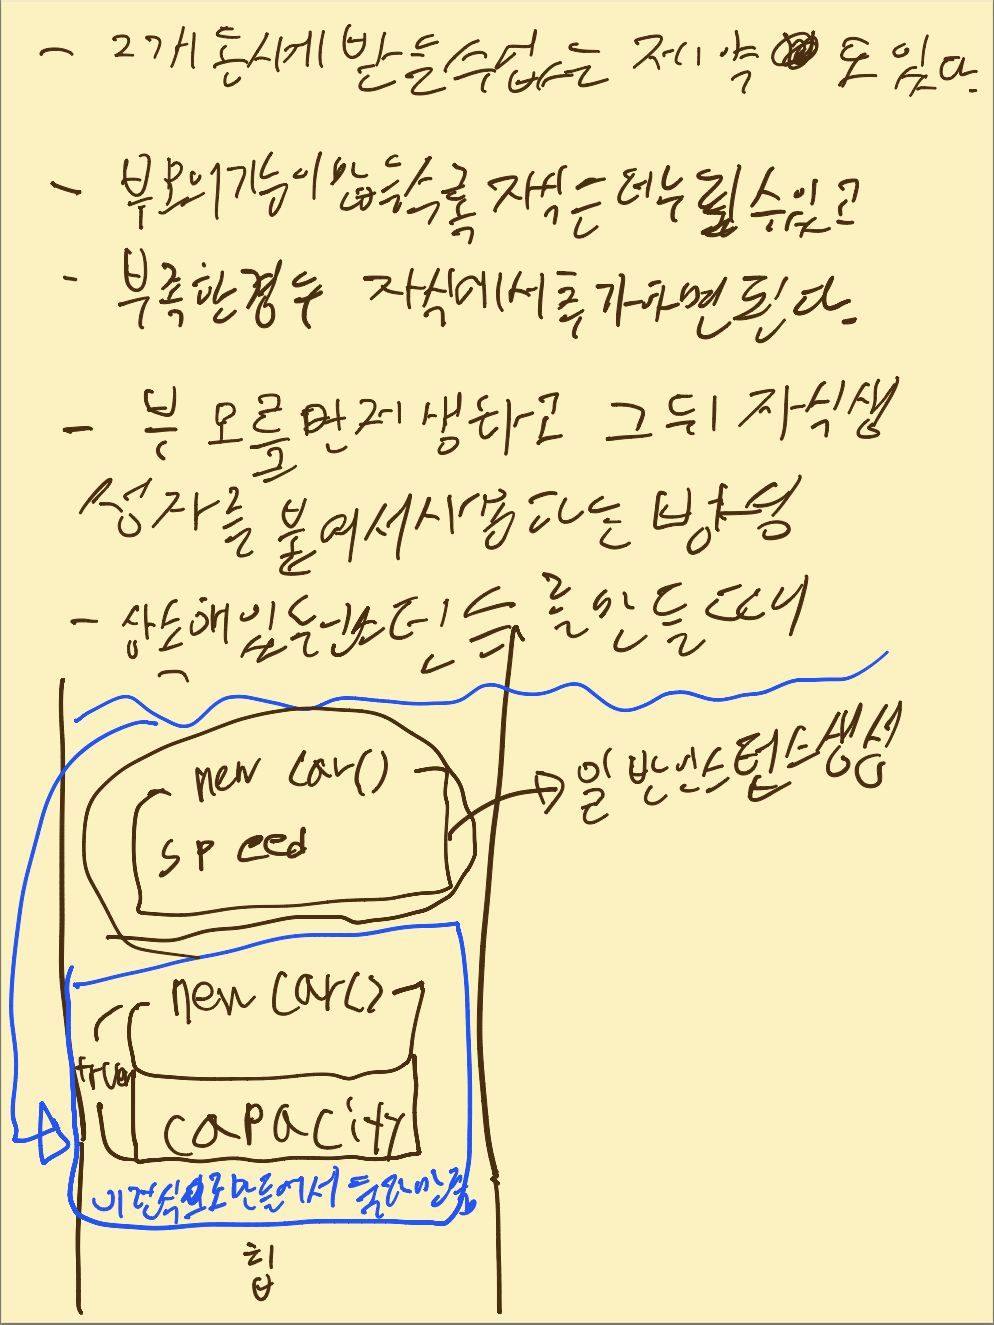 - 2개 동시에 받을수 없는 제약 도 있다.
- 부모의기능이 많을수록 자식은 더누릴수있고
- 부족한경우 자식에서추가하면된다.
- 부모를먼저생하고 그뒤 자식생
성자를 붙여서사용하는 방식
- 상속해 인스턴스 를만들때
new car()
speed
일반인스턴스생성
new car()
truck
capacity
이런식으로만들어서
힙